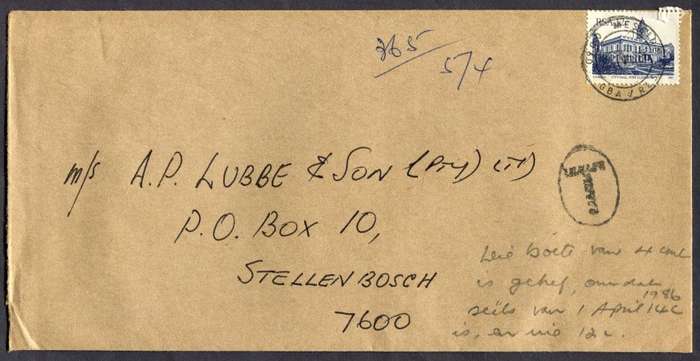 365
5/4
RSA
m/s A.P. LUBBE & SON (PTY) LTD
P.O. BOX 10,
STELLENBOSCH
7600
van 4 cent
is gehef, omdat
1986
seëls van 1 April 14c
is, en nie 12c.